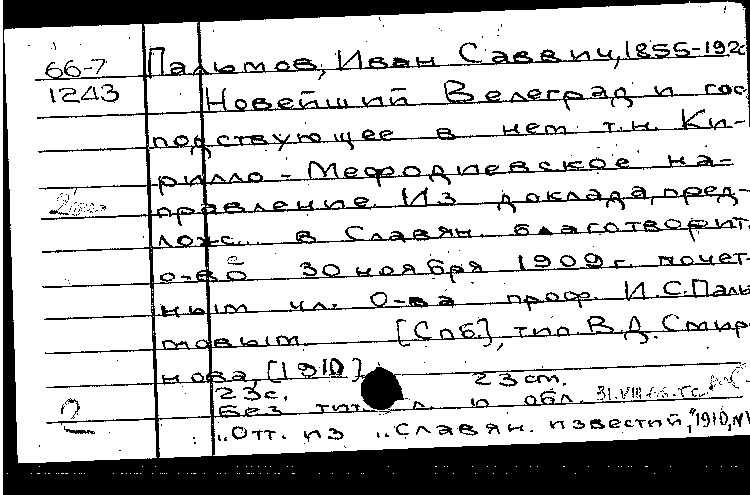 66-7 Пальмов, Иван Саввич, 1855-192
1243 Новейший Велеград и гос
подствующее в нем т.н. Ки-
рилло-Мефодиевское на-
правление. Из доклада, пред-
лож. в Славян. благотворит.
о-ве 30 ноября 1909 г. почет-
ным чл. О-ва проф. И.С. Паль
мовым. [Спб.], тип. В.Д. Смир
нова, [1910].
23с. 23 см.
Без тит. л. и обл. 31.VIII.66.
2 "Отт. из "Славян. известий," 1910, №